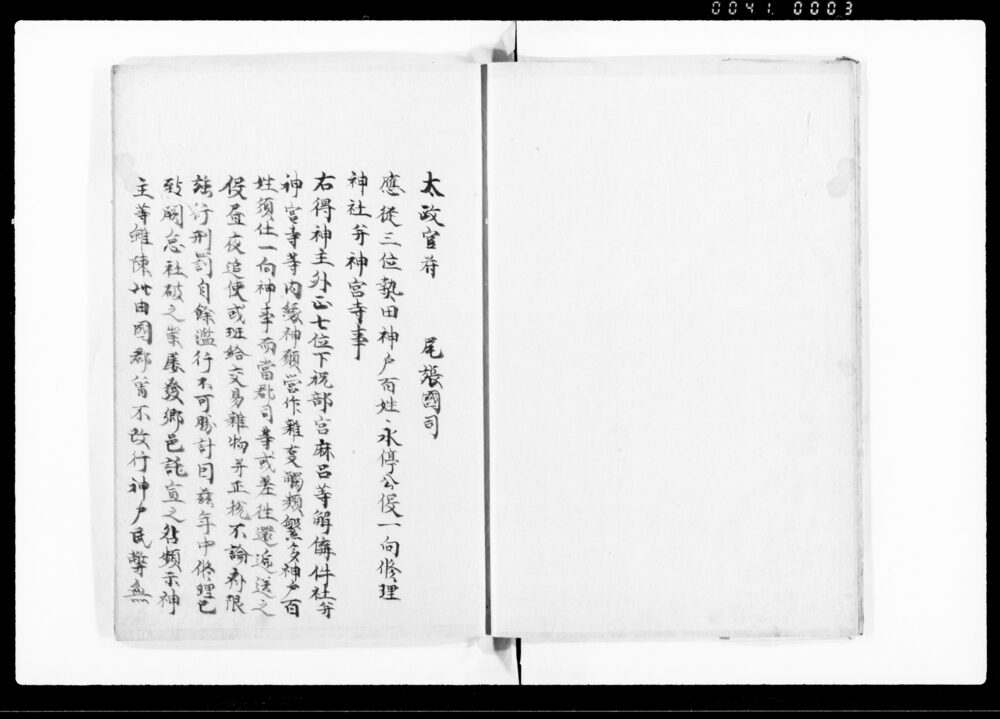 0041 0003
太政官符　尾張國司
應從三位熱田神戶百姓永停公役一向修理
神社并神宮寺事
右得神主外正七位下祝部宮麻呂等解偁件社并
神宮寺等内緣神願営作雜事觸類繁多神戶百
姓須仕一向神事而當郡司等或差往還遞送之
役昼夜追使或班給交易雜物并正税不論有限
強行刑罰自餘濫行不可勝計因茲年中修理已
致闕怠社破之祟屡發鄉邑託宣之咎頻示神
主等雖陳此由國郡曾不改行神戶民弊無